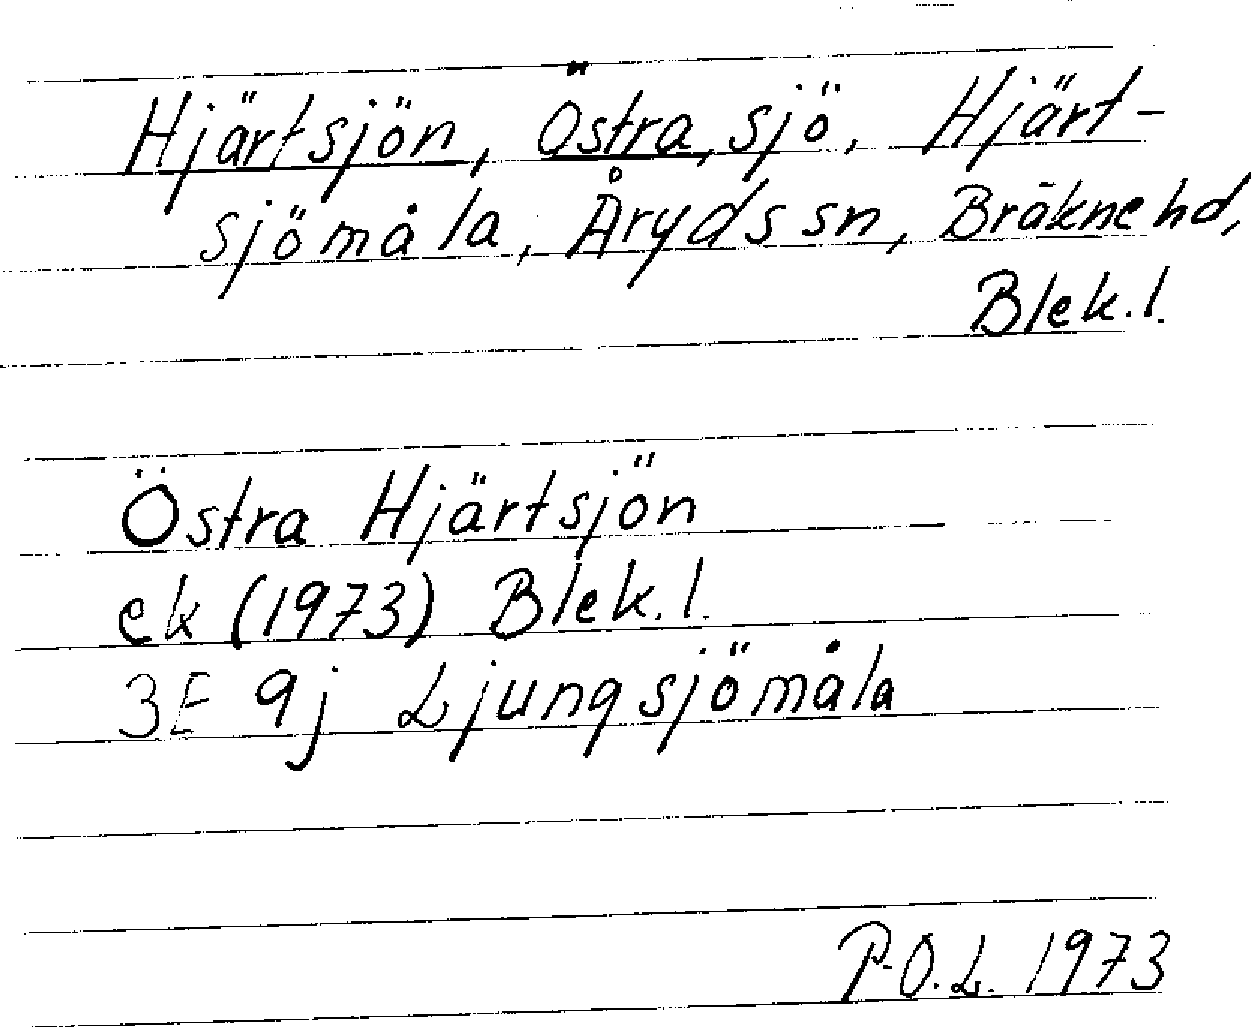 Hjärtsjön, Östra, sjö, Hjärt-
sjömåla, Åryds sn, Bräkne hd,
Blek.l.
Östra Hjärtsjön
ek (1973) Blek.l.
3E 9j Ljungsjömåla
P-O.L. 1973